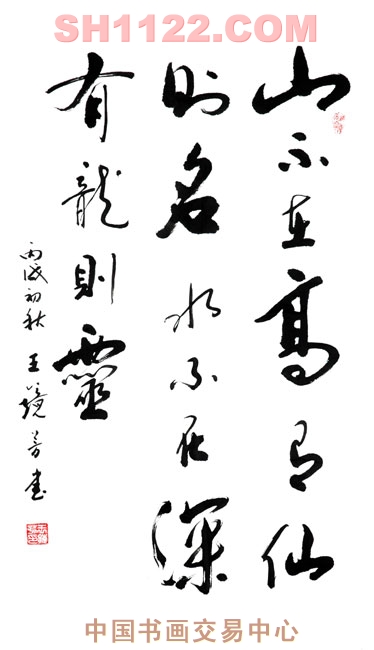 SH1122.COM
山不在高有仙
则名水不在深
有龍則靈
丙戌初秋王镜芳书
中国书画交易中心